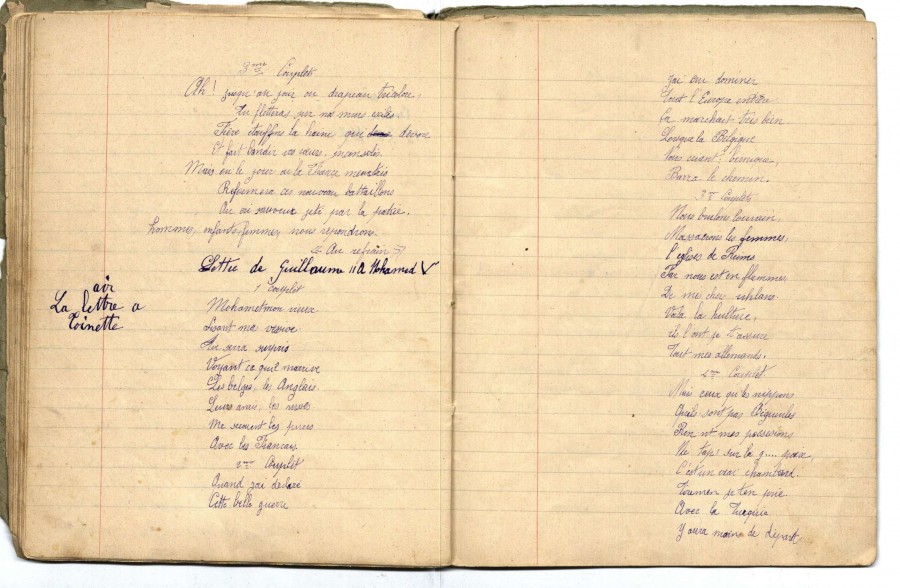 3me Couplet
Ah! jusqu'au jour ou drapeau tricolore
Tu flotteras sur nos murs exilés
Frère étouffons la haine que devore
Et fait bondir vos cœurs,
Mais en le jour ou la France
Reformera ces nouveau battaillons
Au par la patrie.
hommes, enfants femmes, nous repondrons.
Au refrain
Lettre de Guillaume II a Mohamed V
air
La lettre a
Toinette
1 couplet
Mohamet mon vieux
Lisant ma
Tu sera surpris
Voyant ce qu'il m'arrive
Les belges, les Anglais
Leurs amis, les russes
Me les puces
Avec les Francais
2me Couplet
Quand j'ai declaré
Cette belle guerre
J'ai cru dominer
Tout l'Europa entière
Ca marchait très bien
Lorsque la Belgique
Nous
Barra le chemin.
3me Couplet
Nous brulons Louvain
Massacrons les femmes,
l'eglises de Reims
Par nous est en flammes
De mes chers uhlans
Voila la kulture,
ils l'ont je t'assure
Tout mes allemands.
4me Couplet
Mais ceux qu'les nippons
Qu'ils sont pas
mes possesions
Me tap' sur la g....
C'est un vrai chambard
Avec la Turquie
Y aura moins de départ